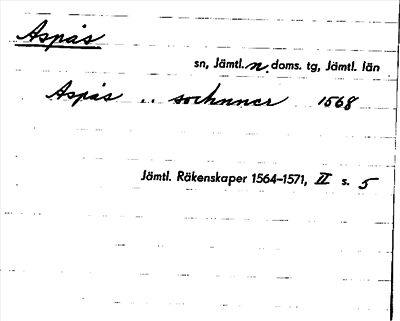 Aspås
sn, Jämtl. n. doms. tg, Jämtl. län
Aspås .. sochnner 1568
Jämtl. Räkenskaper 1564–1571, II s. 5